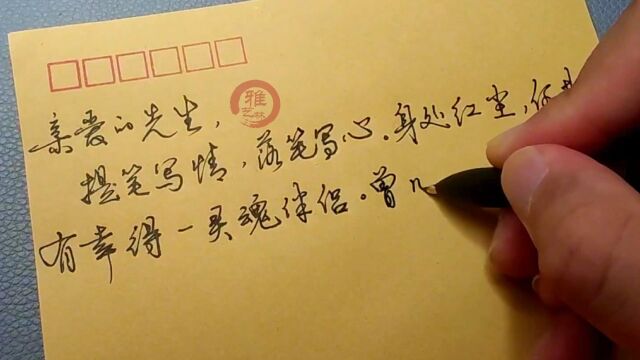 亲爱的先生,
提笔写情,落笔写心.身处红尘,何其
有幸得一灵魂伴侣.曾
雅
艺林